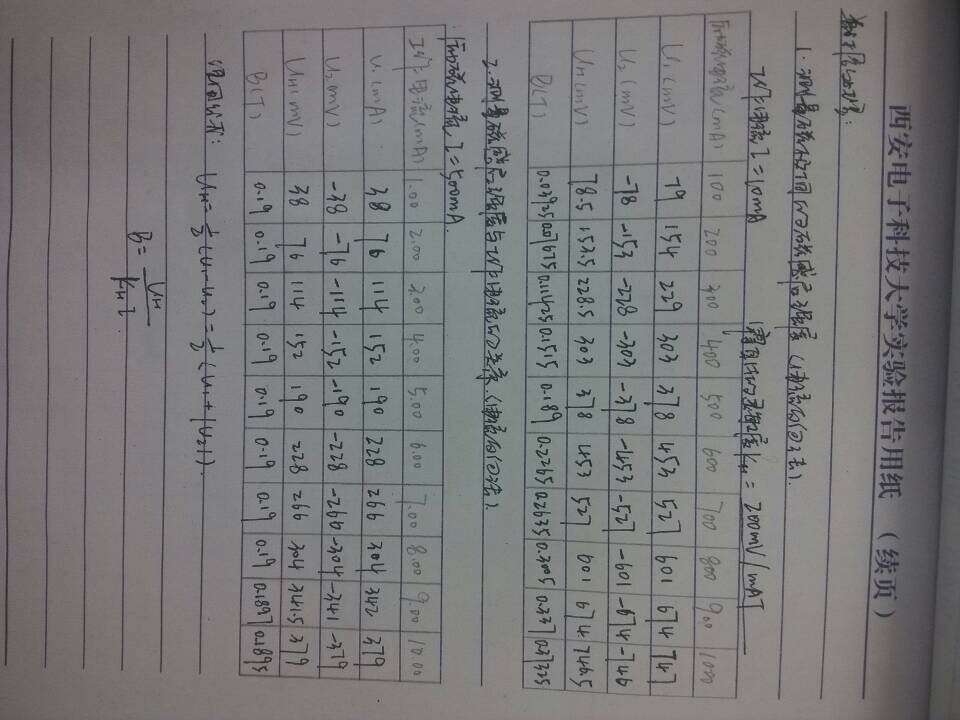 西安电子科技大学实验报告用纸（续页）
数据处理：
1. 测量电磁不同时的磁感应强度（电流的回法）.
工作电流I=10mA 霍尔片的灵敏度KH = 200mV/mAT
励磁电流(mA) 100 200 300 400 500 600 700 800 900 1000
U1(mV) 79 154 229 303 378 453 527 601 674 747
U2(mV) -78 -153 -228 -303 -378 -453 -527 -601 -674 -746
UH(mV) 78.5 153.5 228.5 303 378 453 527 601 674 746.5
B(T) 0.03925 0.07675 0.11425 0.1515 0.189 0.2265 0.2635 0.3005 0.337 0.37325
2. 测量磁感应强度与工作电流的关系.（电流的回法）.
励磁电流I=500mA.
工作电流(mA) 1.00 2.00 3.00 4.00 5.00 6.00 7.00 8.00 9.00 10.00
U1(mA) 38 76 114 152 190 228 266 304 342 379
U2(mV) -38 -76 -114 -152 -190 -228 -266 -304 -341 -379
UH(mV) 38 76 114 152 190 228 266 304 341.5 379
B(T) 0.19 0.19 0.19 0.19 0.19 0.19 0.19 0.19 0.1897 0.1895
UH = 1/2(U1-U2) = 1/2(U1+|U2|).
B = UH/KHI